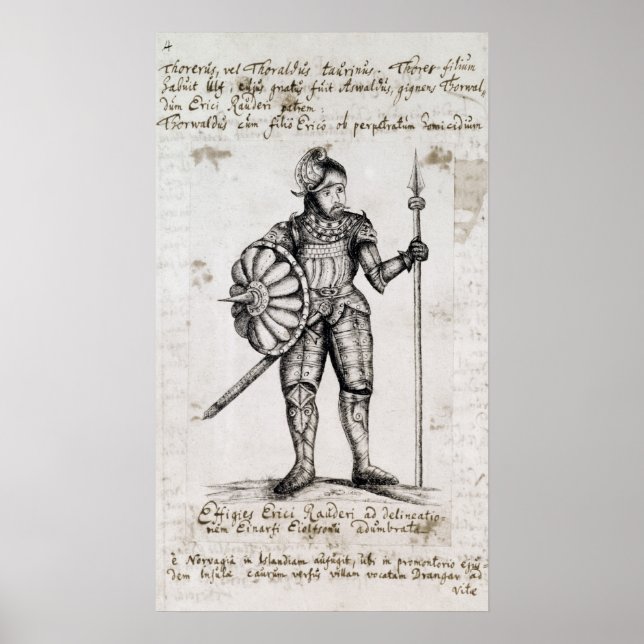 4
Thorerus, vel Thoraldus taurinus. Thorer filium
habuit Ulf, cujus gnatus fuit Aswaldus, gignens Thorwal,
dum Erici Rauderi patrem:
Thorwaldus cum filio Erico ob perpetratum homicidium
Effigies Erici Rauderi ad delineatio-
nem Einarfi Eiolfsonii adumbrata
è Norvagia in Islandiam aufugit, ubi in promontorio ejus
dem Insulæ caurum versus villam vocatam Drangar ad
vitæ